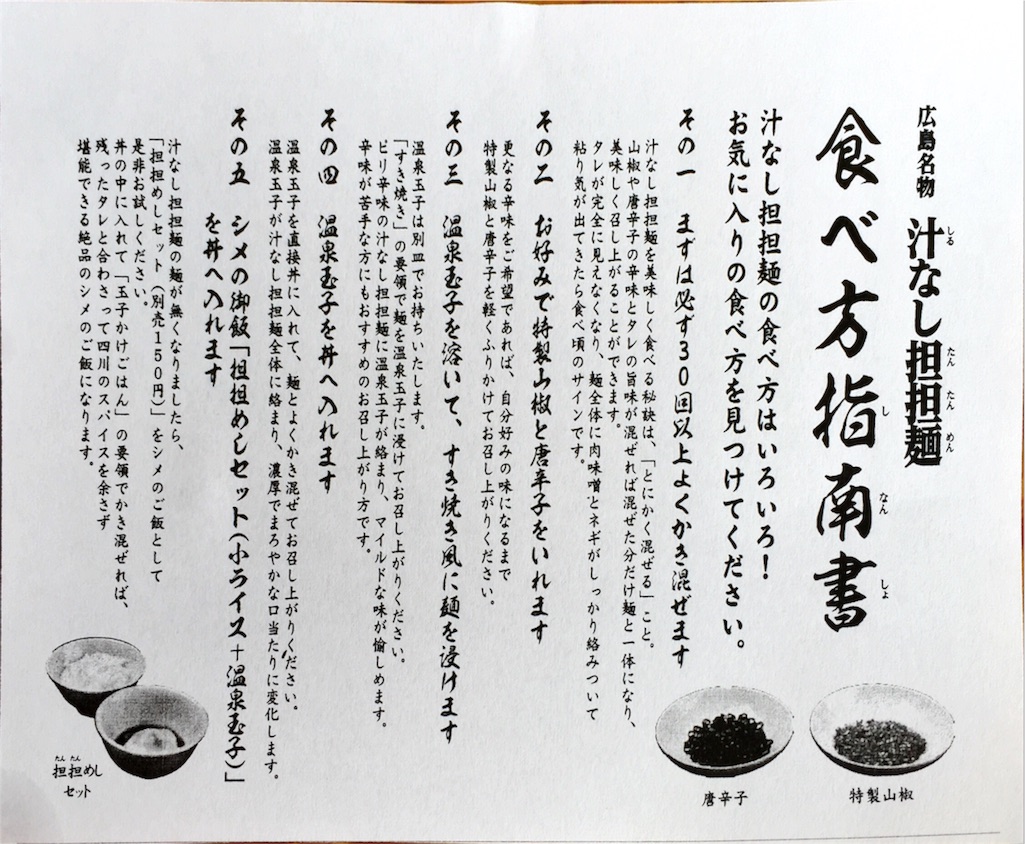 広島名物 汁なし担担麺
食べ方指南書
汁なし担担麺の食べ方はいろいろ!
お気に入りの食べ方を見つけてください。
その一 まずは必ず30回以上よくかき混ぜます
汁なし担担麺を美味しく食べる秘訣は、「とにかく混ぜる」こと。
山椒や唐辛子の辛味とタレの旨味が混ぜれば混ぜた分だけ麺と一体になり、
美味しく召し上がることができます。
タレが完全に見えなくなり、麺全体に肉味噌とネギがしっかり絡みついて
粘り気が出てきたら食べ頃のサインです。
その二 お好みで特製山椒と唐辛子をいれます
更なる辛味をご希望であれば、自分好みの味になるまで
特製山椒と唐辛子を軽くふりかけてお召し上がりください。
その三 温泉玉子を溶いて、すき焼き風に麺を浸けます
温泉玉子は別皿でお持ちいたします。
「すき焼き」の要領で麺を温泉玉子に浸けてお召し上がりください。
ピリ辛味の汁なし担担麺に温泉玉子が絡まり、マイルドな味が愉しめます。
辛味が苦手な方にもおすすめのお召し上がり方です。
その四 温泉玉子を丼へ入れます
温泉玉子を直接丼に入れて、麺とよくかき混ぜてお召し上がりください。
温泉玉子が汁なし担担麺全体に絡まり、濃厚でまろやかな口当たりに変化します。
その五 シメの御飯「担担めしセット(小ライス+温泉玉子)」
を丼へ入れます
汁なし担担麺の麺が無くなりましたら、
「担担めしセット(別売150円)」をシメのご飯として
是非お試しください。
丼の中に入れて「玉子かけごはん」の要領でかき混ぜれば、
残ったタレと合わさって四川のスパイスを余さず
堪能できる絶品のシメのご飯になります。
特製山椒
唐辛子
担担めし
セット